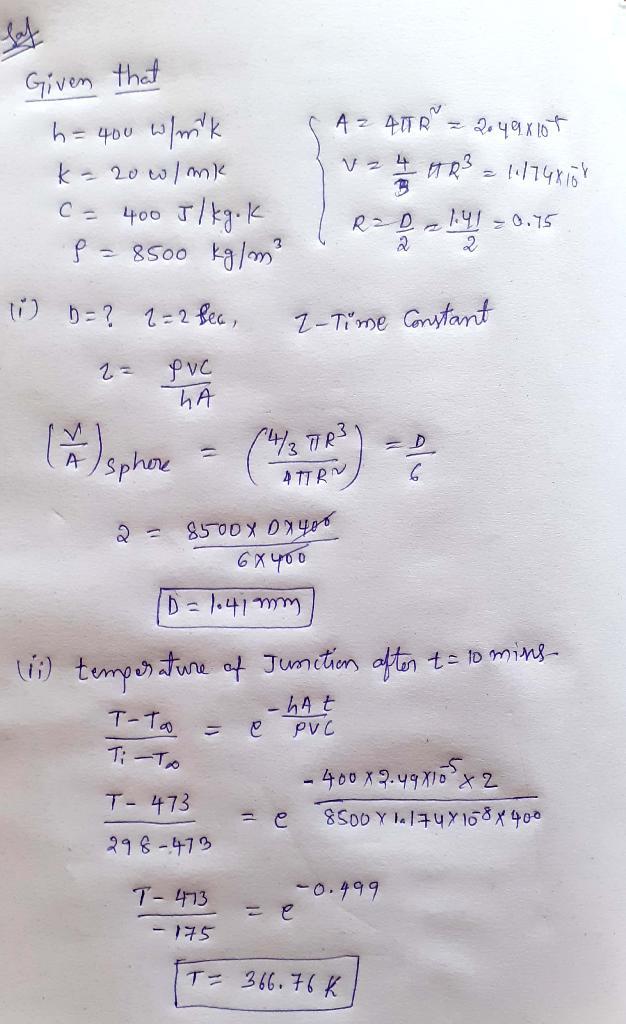 Sol
Given that
h = 400 w/m²k
k = 20 w/mk
C = 400 J/kg.k
ρ = 8500 kg/m³
A = 4πR² = 2.49x10
V = 4/3 πR³ = 1.174x10⁻⁸
R = D/2 = 1.41/2 = 0.75
(i) D=? τ=2 Sec, τ-Time Constant
τ = ρVC/hA
(V/A) Sphere = (4/3 πR³ / 4πR²) = D/6
2 = 8500 x D x 400 / 6 x 400
D = 1.41 mm
(ii) temperature of Junction after t = 10 mins
T-T∞ / Ti-T∞ = e^(-hAt/ρVC)
T-473 / 298-473 = e^(-400x2.49x10⁻⁵x2 / 8500x1.174x10⁻⁸x400)
T-473 / -175 = e^(-0.499)
T = 366.76 K